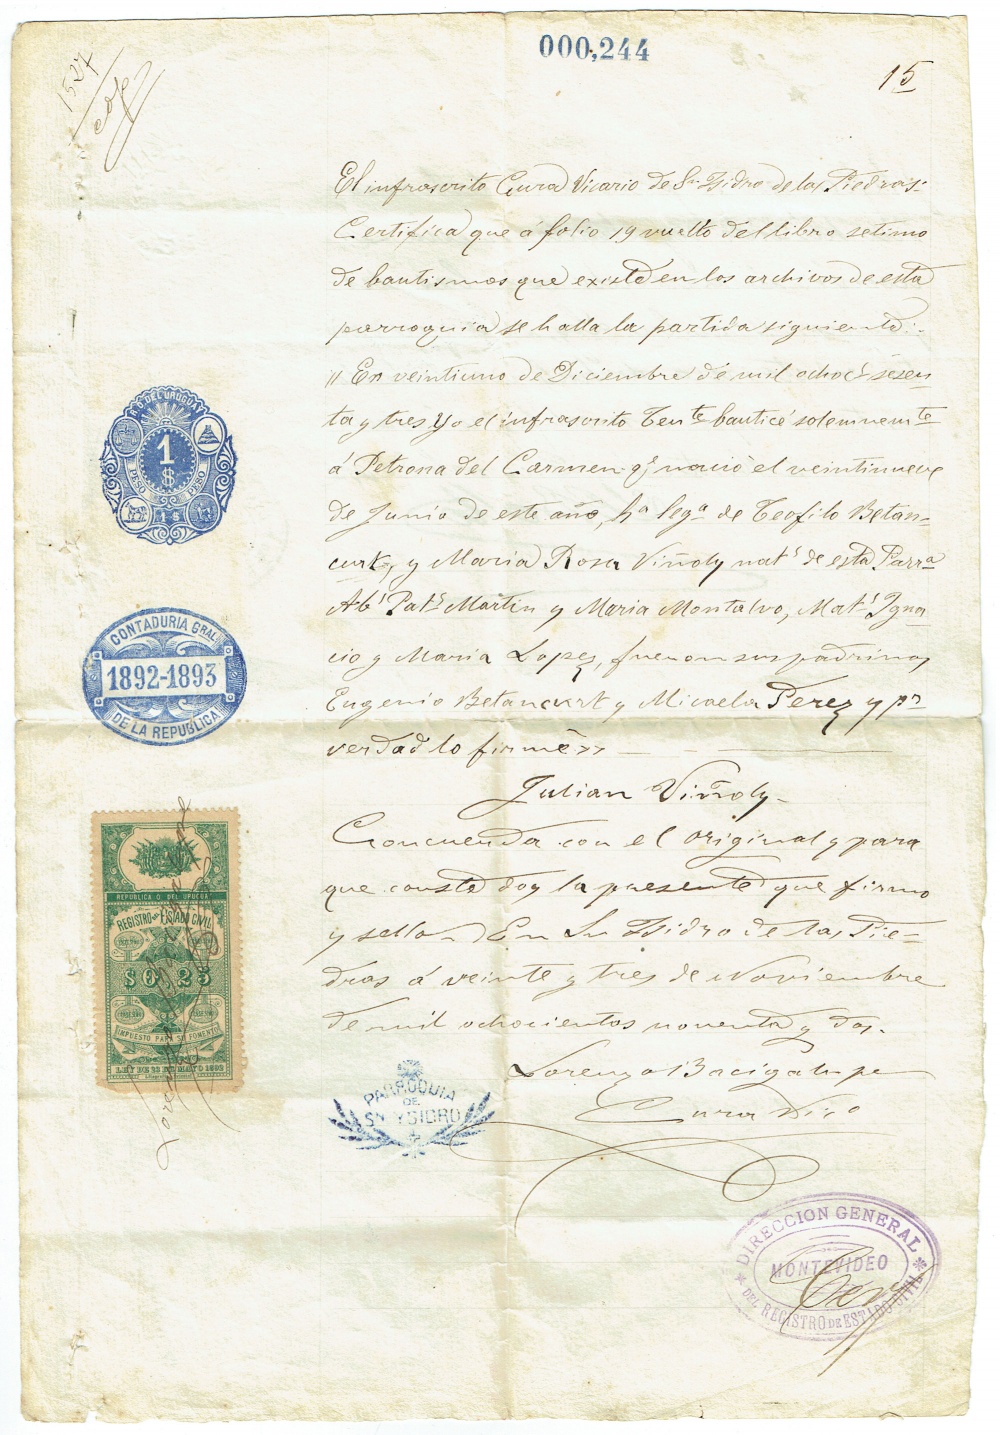 000,244
15
1527
El infrascrito Cura Vicario de Sn. Isidro de las Piedras:
Certifica que á folio 19 vuelto del libro setimo
de bautismos que existe en los archivos de esta
parroquia se halla la partida siguiente:-
"En veintiuno de Diciembre de mil ochocs. sesen-
ta y tres Yo el infrascrito Tente. bauticé solemnemte
á Petrona del Carmen q.e nació el veintinueve
de Junio de este año, ha lega de Teofilo Betan-
curt, y Maria Rosa Viñoly nats de esta Parra
Abs Pats Martin y Maria Montalvo, Mats Igna
cio y Maria Lopez, fueron sus padrinos
Eugenio Betancurt y Micaela Perez y pr
verdad lo firmé»
Julian Viñoly-
Concuerda con el original y para
que conste doy la presente que firmo
y sello. En Sn Isidro de las Pie-
dras á veinte y tres de Noviembre
de mil ochocientos noventa y dos.
Lorenzo Bacigalupe
Cura Vico
R. O. DEL URUGUAY
1
$
PESO PESO
CONTADURIA GRAL
1892-1893
DE LA REPUBLICA
REPUBLICA O. DEL URUGUA
REGISTRO DE ESTADO CIVIL
$ 0.25
IMPUESTO PARA SU FOMENTO
LEY DE 25 DE MAYO 1892
PARROQUIA
DE
Sn YSIDRO
DIRECCION GENERAL
MONTEVIDEO
DEL REGISTRO DE ESTADO CIVIL